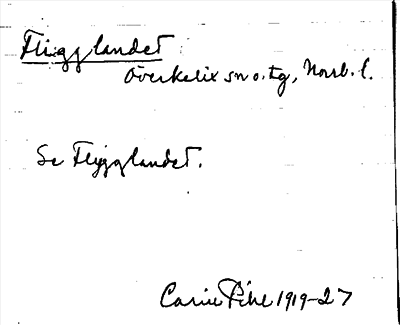 Fliggglandet
Överkalix sn o. tg, Norrb. l.
Se Flygglandet.
Carin Pihl 1919-27